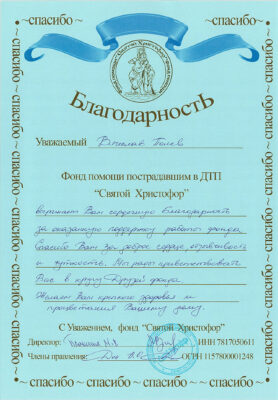 ~спасибо~ ~спасибо~
БлагодарностЬ
Уважаемый Вячеслав
Фонд помощи пострадавшим в ДТП
“Святой Христофор”
выражает Вам сердечную благодарность
за оказанную поддержку работы фонда.
Спасибо Вам за доброе сердце, отзывчивость
и чуткость. приветствовать
Вас в кругу Друзей фонда.
Желаем Вам крепкого здоровья и
процветания Вашему делу.
С Уважением, фонд “Святой Христофор”
Директор: ИНН 7817050611
Члены правления: ОГРН 1157800001248
~спасибо~ спасибо ~ спасибо ~спасибо~
~ спасибо ~ спасибо ~ спасибо ~ спасибо ~ спасибо ~
~ спасибо ~ спасибо ~ спасибо ~ спасибо ~ спасибо ~